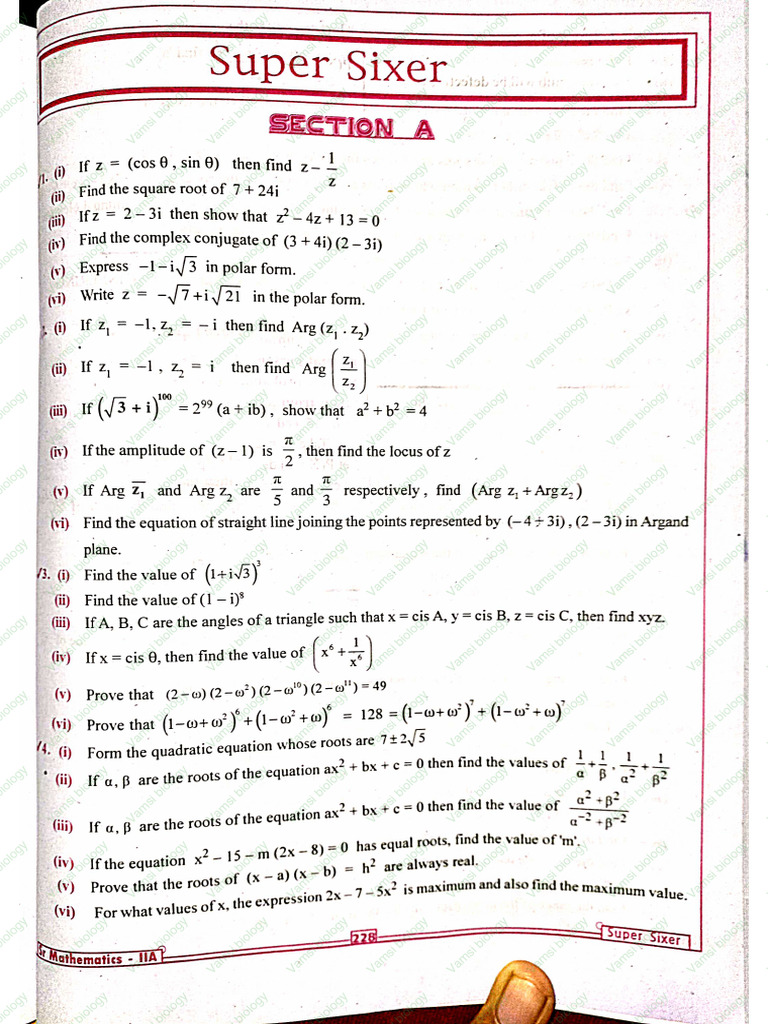 Super Sixer
SECTION A
1. (i) If z = (cos θ , sin θ) then find z – 1/z
(ii) Find the square root of 7 + 24i
(iii) If z = 2 – 3i then show that z² – 4z + 13 = 0
(iv) Find the complex conjugate of (3 + 4i) (2 – 3i)
(v) Express –1 – i√3 in polar form.
(vi) Write z = –√7 + i√21 in the polar form.
(i) If z₁ = –1, z₂ = – i then find Arg (z₁ . z₂)
(ii) If z₁ = –1 , z₂ = i then find Arg (z₁/z₂)
(iii) If (√3 + i)¹⁰⁰ = 2⁹⁹ (a + ib) , show that a² + b² = 4
(iv) If the amplitude of (z – 1) is π/2 , then find the locus of z
(v) If Arg z̅₁ and Arg z₂ are π/5 and π/3 respectively , find (Arg z₁ + Arg z₂)
(vi) Find the equation of straight line joining the points represented by (– 4 + 3i) , (2 – 3i) in Argand
plane.
3. (i) Find the value of (1+i√3)³
(ii) Find the value of (1 – i)⁸
(iii) If A, B, C are the angles of a triangle such that x = cis A, y = cis B, z = cis C, then find xyz.
(iv) If x = cis θ, then find the value of (x⁶ + 1/x⁶)
(v) Prove that (2 – ω) (2 – ω²) (2 – ω¹⁰) (2 – ω¹¹) = 49
(vi) Prove that (1–ω+ω²)⁶ + (1–ω²+ω)⁶ = 128 = (1–ω+ω²)⁷ + (1–ω²+ω)⁷
4. (i) Form the quadratic equation whose roots are 7 ± 2√5
(ii) If α, β are the roots of the equation ax² + bx + c = 0 then find the values of 1/α + 1/β , 1/α² + 1/β²
(iii) If α, β are the roots of the equation ax² + bx + c = 0 then find the value of (α² + β²)/(α⁻² + β⁻²)
(iv) If the equation x² – 15 – m (2x – 8) = 0 has equal roots, find the value of 'm'.
(v) Prove that the roots of (x – a) (x – b) = h² are always real.
(vi) For what values of x, the expression 2x – 7 – 5x² is maximum and also find the maximum value.
Sr Mathematics - IIA
228
Super Sixer
Vamsi biology